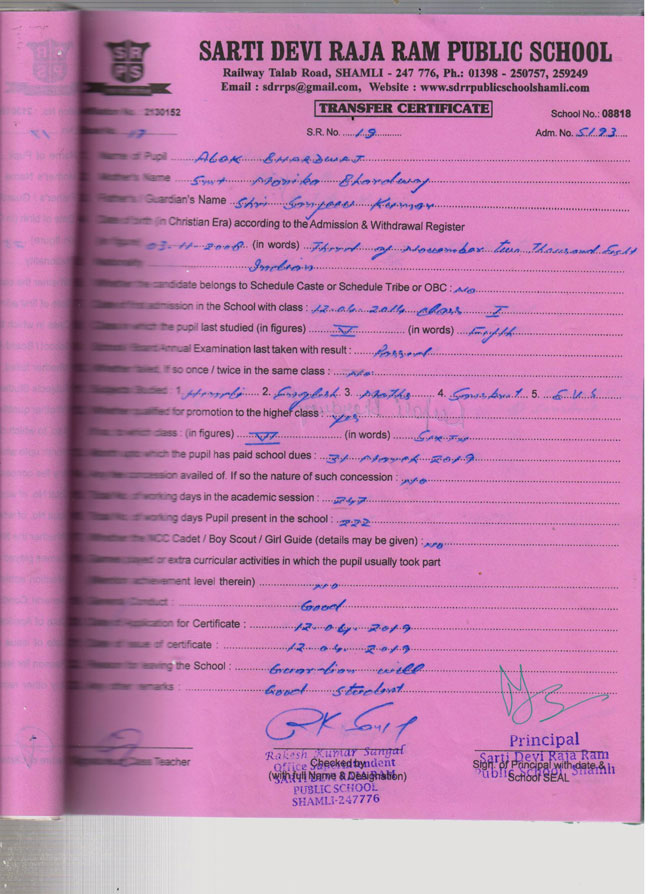 SRPS
SARTI DEVI RAJA RAM PUBLIC SCHOOL
Railway Talab Road, SHAMLI - 247 776, Ph.: 01398 - 250757, 259249
Email : sdrrps@gmail.com, Website : www.sdrrpublicschoolshamli.com
TRANSFER CERTIFICATE
Affiliation No. 2130152 School No.: 08818
S.R. No. 19 Adm. No. 5193
Name of Pupil ALOK BHARDWAJ
Mother's Name Smt Monika Bhardwaj
Father's / Guardian's Name Shri Sanjeev Kumar
Date of birth (in Christian Era) according to the Admission & Withdrawal Register
(in figure) 03-11-2008 (in words) Third of November two Thousand Eight
Nationality Indian
Whether the candidate belongs to Schedule Caste or Schedule Tribe or OBC : No
Date of first admission in the School with class : 12.04.2014 class I
Class in which the pupil last studied (in figures) V (in words) Fifth
School / Board Annual Examination last taken with result : Passed
Whether failed, if so once / twice in the same class : No
Subjects Studied : 1. Hindi 2. English 3. Maths 4. Sanskrit 5. E.V.S
Whether qualified for promotion to the higher class : yes
If so, to which class : (in figures) VI (in words) Sixth
Month upto which the pupil has paid school dues : 31 March 2019
Any fee concession availed of. If so the nature of such concession : No
Total No. of working days in the academic session : 247
Total No. of working days Pupil present in the school : 222
Whether the NCC Cadet / Boy Scout / Girl Guide (details may be given) : No
Games played or extra curricular activities in which the pupil usually took part
(Mention achievement level therein) No
General Conduct : Good
Date of Application for Certificate : 12.04.2019
Date of issue of certificate : 12.04.2019
Reason for leaving the School : Guardian will
Any other remarks : Good student
Rakesh Kumar Sangal
Office Superintendent
SARTI DEVI RAJA RAM
PUBLIC SCHOOL
SHAMLI-247776
Principal
Sarti Devi Raja Ram
Public School, Shamli
Class Teacher
Checked by
(with full Name & Designation)
Sign. of Principal with date &
School SEAL